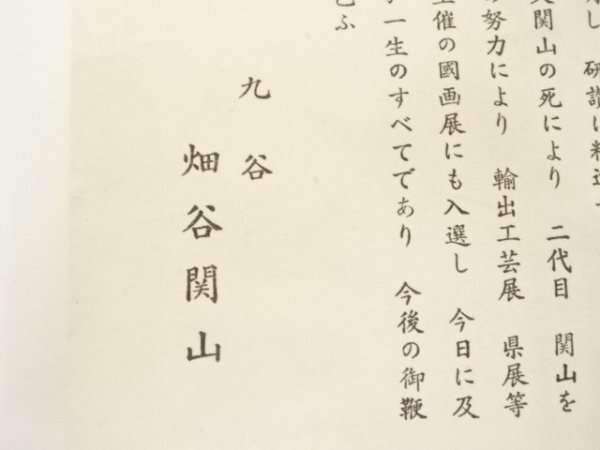 し 研讃に精進
関山の死により 二代目 関山を
努力により 輸出工芸展 県展等
催の國画展にも入選し 今日に及
一生のすべてであり 今後の御鞭
ふ
九谷
畑谷関山